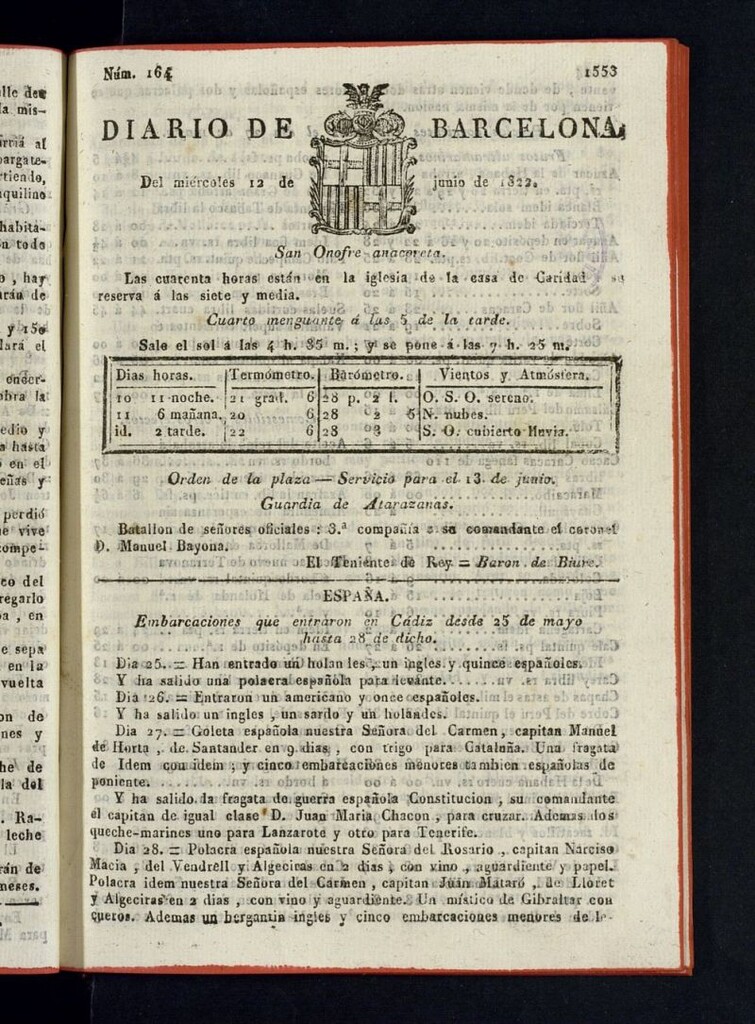 Núm. 164 1553
DIARIO DE BARCELONA,
Del miércoles 12 de junio de 1822.
San Onofre anacoreta.
Las cuarenta horas están en la iglesia de la casa de Caridad se
reserva á las siete y media.
Cuarto menguante á las 5 de la tarde.
Sale el sol á las 4 h. 35 m.; y se pone á las 7 h. 25 m.
Dias horas. Termómetro. Barómetro. Vientos y Atmósfera.
10 11 noche. 21 grad. 6 28 p. 2 l. O. S. O. sereno.
11 6 mañana. 20 6 28 2 5 N. nubes.
id. 2 tarde. 22 6 28 3 S. O. cubierto lluvia.
Orden de la plaza — Servicio para el 13 de junio.
Guardia de Atarazanas.
Batallon de señores oficiales : 3.ª compañía su comandante el coronel
D. Manuel Bayona.
El Teniente de Rey = Baron de Biure.
ESPAÑA.
Embarcaciones que entraron en Cádiz desde 25 de mayo
hasta 28 de dicho.
Dia 25. = Han entrado un holandes, un ingles y quince españoles.
Y ha salido una polacra española para levante.
Dia 26. = Entraron un americano y once españoles.
Y ha salido un ingles , un sardo y un holandes.
Dia 27. = Goleta española nuestra Señora del Carmen, capitan Manuel
de Horta , de Santander en 9 dias , con trigo para Cataluña. Una fragata
de Idem con idem ; y cinco embarcaciones menores tambien españolas de
poniente.
Y ha salido la fragata de guerra española Constitucion , su comandante
el capitan de igual clase D. Juan Maria Chacon , para cruzar. Ademas dos
queche-marines uno para Lanzarote y otro para Tenerife.
Dia 28. = Polacra española nuestra Señora del Rosario , capitan Narciso
Macia , del Vendrell y Algeciras en 2 dias , con vino , aguardiente y papel.
Polacra idem nuestra Señora del Carmen , capitan Juan Mataró , de Lloret
y Algeciras en 2 dias , con vino y aguardiente. Un místico de Gibraltar con
cueros. Ademas un bergantin ingles y cinco embarcaciones menores de le-